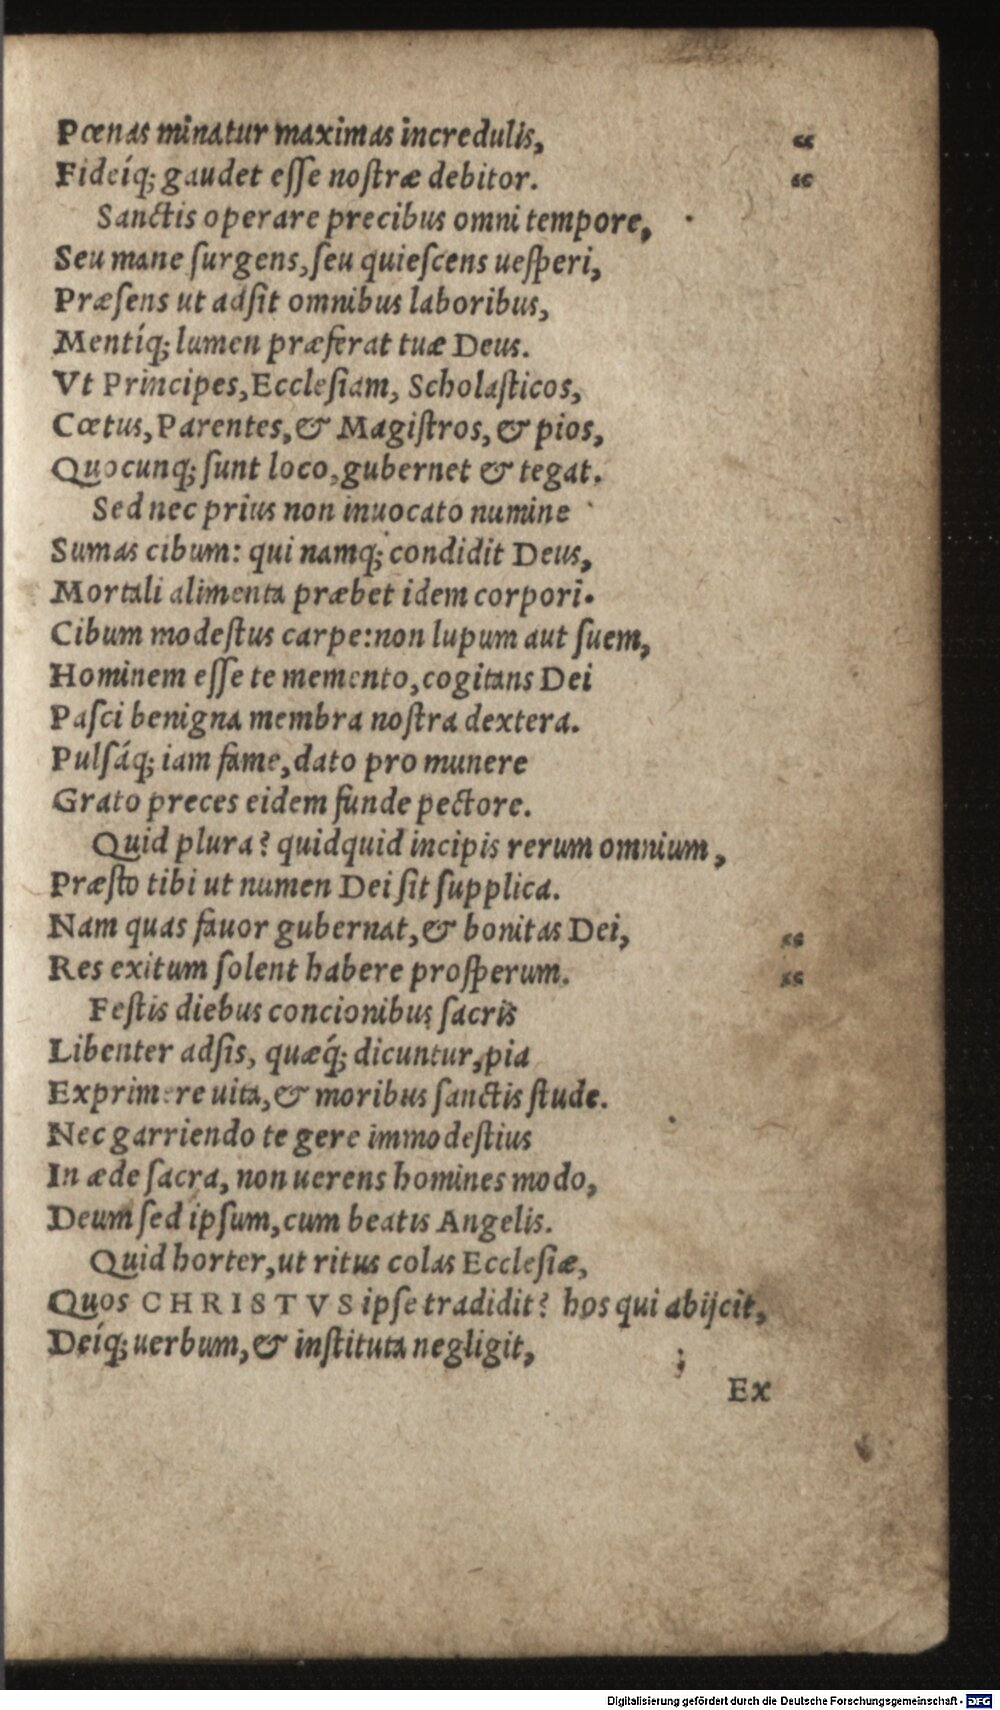 Pœnas minatur maximas incredulis, “
Fideíq; gaudet eſſe noſtræ debitor. “
Sanctis operare precibus omni tempore,
Seu mane ſurgens, ſeu quieſcens ueſperi,
Præſens ut adſit omnibus laboribus,
Mentíq; lumen præferat tuæ Deus.
Vt Principes, Eccleſiam, Scholaſticos,
Cœtus, Parentes, & Magiſtros, & pios,
Quocunq; ſunt loco, gubernet & tegat.
Sed nec prius non inuocato numine
Sumas cibum: qui namq; condidit Deus,
Mortali alimenta præbet idem corpori.
Cibum modeſtus carpe: non lupum aut ſuem,
Hominem eſſe te memento, cogitans Dei
Paſci benigna membra noſtra dextera.
Pulſáq; iam fame, dato pro munere
Grato preces eidem funde pectore.
Quid plura? quidquid incipis rerum omnium,
Præſto tibi ut numen Dei ſit ſupplica.
Nam quas fauor gubernat, & bonitas Dei, “
Res exitum ſolent habere proſperum. “
Feſtis diebus concionibus ſacris
Libenter adſis, quæq́; dicuntur, pia
Exprimere uita, & moribus ſanctis ſtude.
Nec garriendo te gere immodeſtius
In æde ſacra, non uerens homines modo,
Deum ſed ipſum, cum beatis Angelis.
Quid horter, ut ritus colas Eccleſiæ,
Quos CHRISTVS ipſe tradidit? hos qui abijcit,
Deíq; uerbum, & inſtituta negligit,
Ex
Digitalisierung gefördert durch die Deutsche Forschungsgemeinschaft - DFG